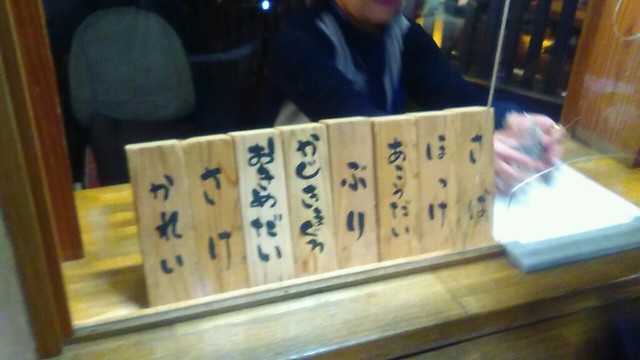 さば
ほっけ
あこうだい
ぶり
かじきまぐろ
おきめだい
さけ
かれい